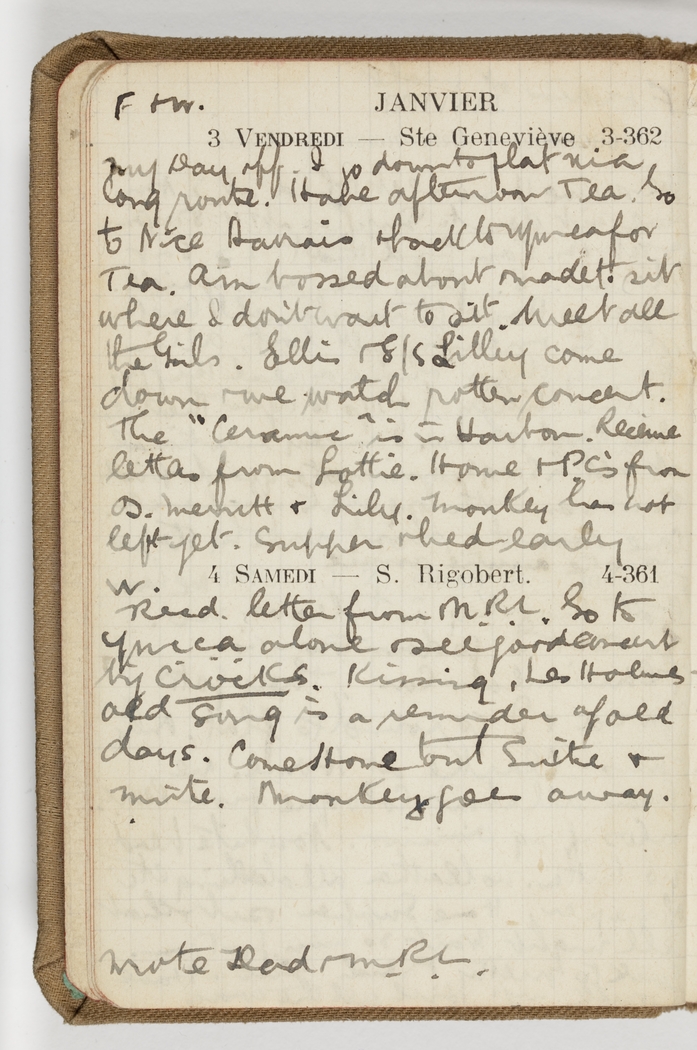 F & W. JANVIER
3 VENDREDI — Ste Geneviève 3-362
my Day off. I go down to flat via
long route. Have afternoon Tea. Go
to Nice Havrais & back to Ymca for
Tea. Am bossed about & made to sit
where I don't want to sit. Meet all
the Girls. Ellis & S/S Lilley come
down & we watch rotten concert.
The "Ceramic" is in Harbour. Receive
letters from Lottie. Home & PCs from
D. Merritt & Lily. Monkey has not
left yet. Supper & bed early
W. 4 SAMEDI — S. Rigobert. 4-361
Recd. letter from M.Rt. Go to
Ymca alone & see good concert
by Crocks. Kissing, Les Holmes
old song is a reminder of old
days. Come Home but &
mute. Monkey goes away.
Wrote Dad & M.Rt.